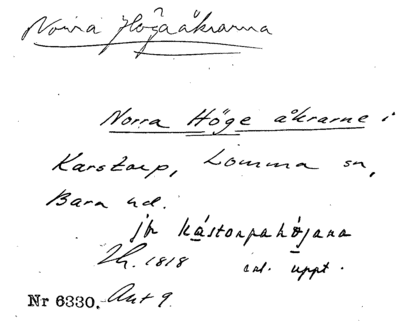 Norra Högaåkrarna
Norra Höge åkrarne i
Karstorp, Lomma sn,
Bara hd.
jfr kástorpahö̀jana
Th. 1818 enl. uppt.
Nr 6330. Akt 9.